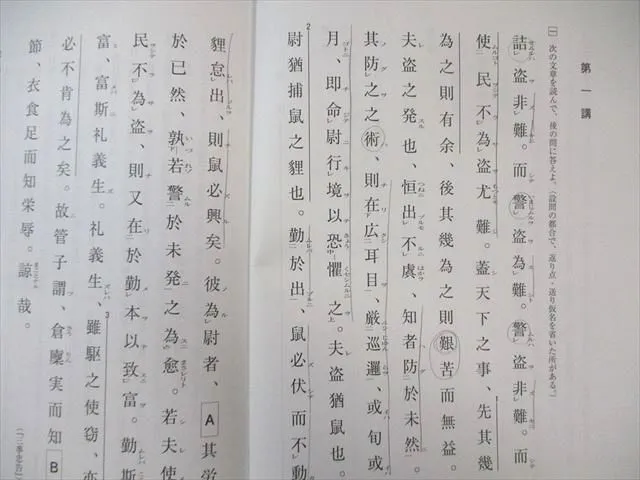 第一講
次の文章を読んで、後の問に答えよ。(設問の都合で、返り点・送り仮名を省いた所がある。)
詰盗非難。而警盗為難。警盗非難。而
使民不為盗尤難。蓋天下之事、先其幾
為之則有余、後其幾為之則艱苦而無益。
夫盗之発也、恒出不虞、知者防於未然。
其防之之術、則在広耳目、厳巡邏、或旬或
月、即命尉行境以恐懼之。夫盗猶鼠也。
尉猶捕鼠之貍也。勤於出、鼠必伏而不動
貍怠出、則鼠必興矣。彼為尉者、A其労
於已然、孰若警於未発之為愈。若夫使
民不為盗、則又在於勤本以致富。勤斯
富、富斯礼義生。礼義生、雖駆之使窃、亦
必不肯為之矣。故管子謂、倉廩実而知B
節、衣食足而知栄辱。諒哉。